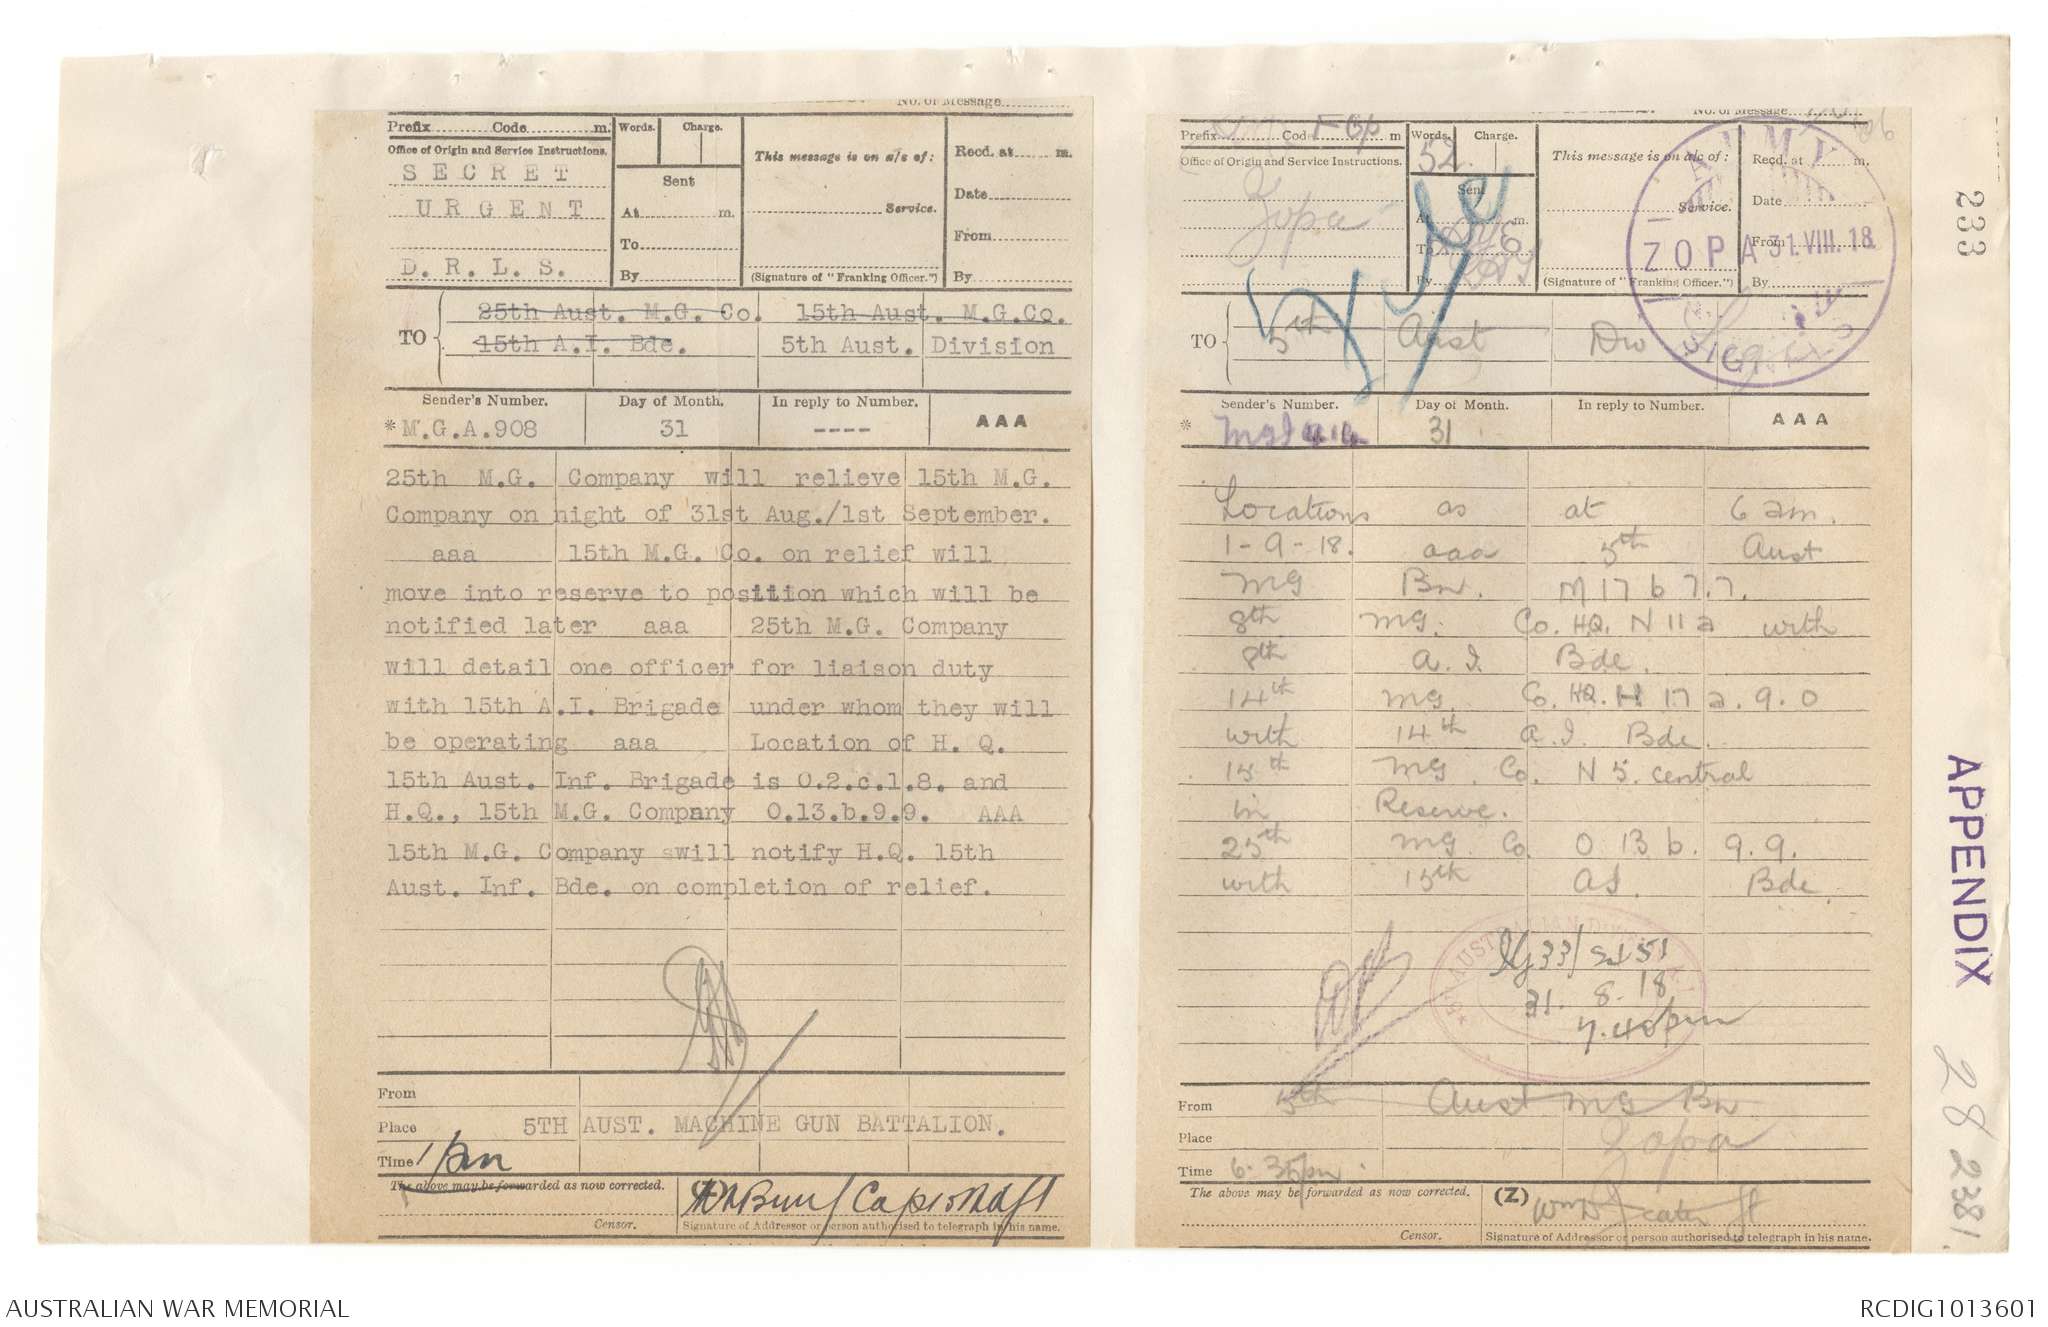 No. of Message
Prefix Code m. Words. Charge.
This message is on a/c of: Recd. at m.
Office of Origin and Service Instructions.
SECRET
Sent
URGENT
Service. Date
At m.
To From
D. R. L. S.
By (Signature of "Franking Officer.") By
TO 25th Aust. M.G. Co. 15th Aust. M.G.Co.
15th A.I. Bde. 5th Aust. Division
Sender's Number. Day of Month. In reply to Number. AAA
*M.G.A.908 31 ----
25th M.G. Company will relieve 15th M.G.
Company on night of 31st Aug./1st September.
aaa 15th M.G. Co. on relief will
move into reserve to position which will be
notified later aaa 25th M.G. Company
will detail one officer for liaison duty
with 15th A.I. Brigade under whom they will
be operating aaa Location of H. Q.
15th Aust. Inf. Brigade is O.2.c.1.8. and
H.Q., 15th M.G. Company O.13.b.9.9. AAA
15th M.G. Company swill notify H.Q. 15th
Aust. Inf. Bde. on completion of relief.
From
Place 5TH AUST. MACHINE GUN BATTALION.
Time 1 pm
The above may be forwarded as now corrected. (Z)
Censor. Signature of Addressor or person authorised to telegraph in his name.
No. of Message
Prefix Code m Words. Charge.
52.
This message is on a/c of: Recd. at m.
Office of Origin and Service Instructions.
Zopa
Sent
Service. Date
At m.
To From
By (Signature of "Franking Officer.") By
ARMY
ZOPA 31.VIII.18
SIGNALS
TO 5th Aust Div
Sender's Number. Day of Month. In reply to Number. AAA
* 31
Locations as at 6 am.
1-9-18. aaa 5th Aust
MG Bn. M 17 b 7.7.
8th MG. Co. HQ. N 11 a with
8th A.I. Bde.
14th MG. Co. HQ. H 17 a. 9.0
with 14th A.I. Bde.
15th MG Co. N 5. central
in Reserve.
25th MG Co. O 13 b. 9.9.
with 15th AI. Bde
31. 8. 18
7.40pm
From 5th Aust MG Bn
Place Zopa
Time 6.35pm.
The above may be forwarded as now corrected. (Z)
Censor. Signature of Addressor or person authorised to telegraph in his name.
233
APPENDIX
28 2381.
AUSTRALIAN WAR MEMORIAL
RCDIG1013601